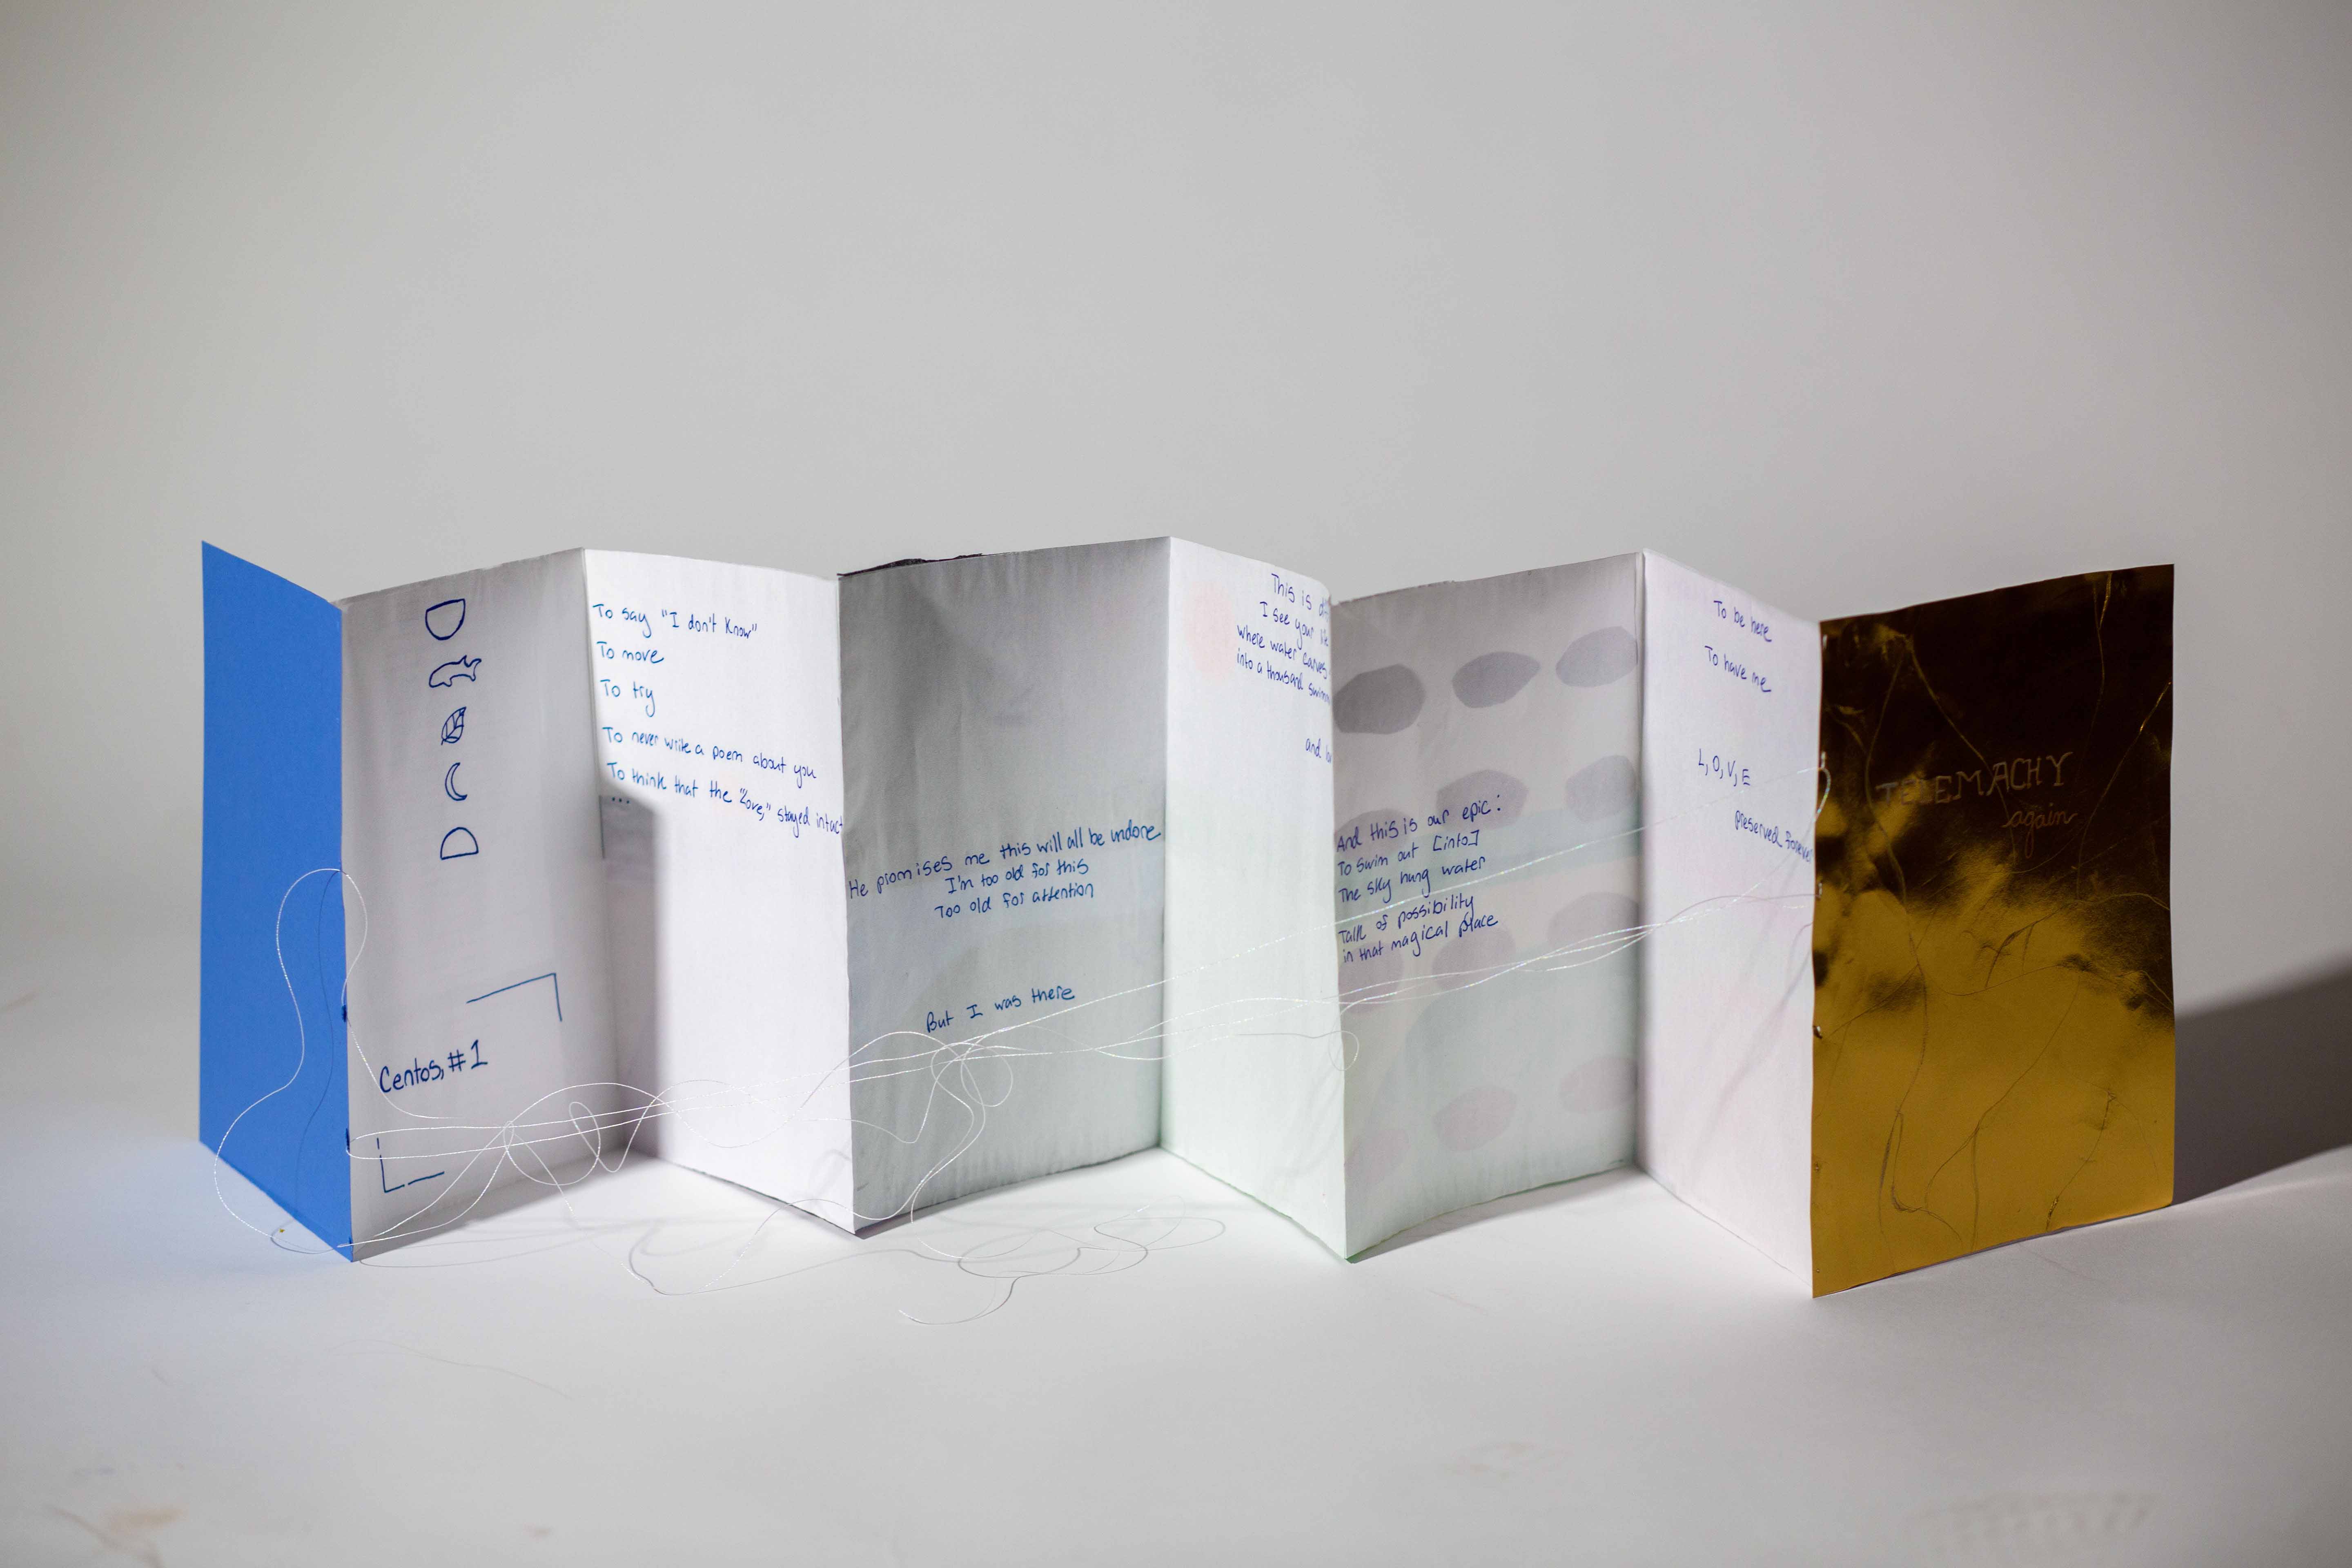 Centos, #1
To say "I don't know"
To move
To try
To never write a poem about you
To think that the "Love," stayed intact
...
He promises me this will all be undone
I'm too old for this
Too old for attention
But I was there
This is
I see your
where water carves
into a thousand
and
And this is our epic:
To swim out [into]
The sky hung water
Talk of possibility
in that magical place
To be here
To have me
L, O, V, E
preserved forever
TELEMACHY
again